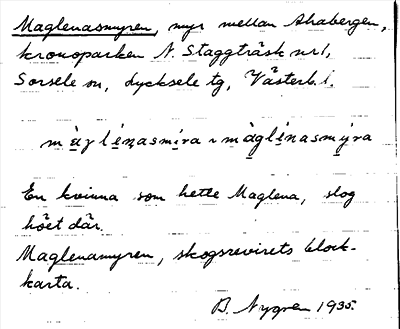 Maglenasmyren, myr mellan Ahabergen,
kronoparken N. Staggträsk nr 1,
Sorsele sn, Lycksele tg, Västerb. l.
màglẹ́nasmíra ~ màglẹ́nasmýra
En kvinna som hette Maglena, slog
höet där.
Maglenamyren, skogsrevirets block-
karta.
B. Nygren 1935.